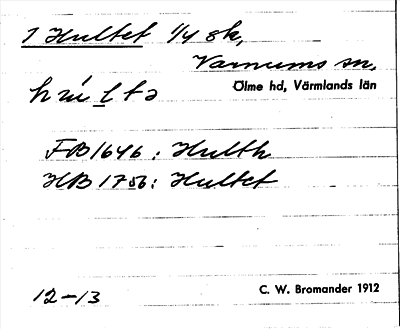 1 Hultet 1/4 sk,
Varnums sn,
Ölme hd, Värmlands län
FB 1646: Hulth
HB 1756: Hultet
12-13
C. W. Bromander 1912